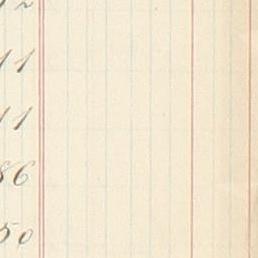 2
11
11
86
50